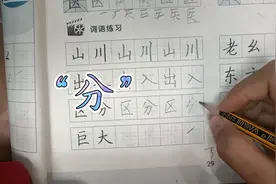 词语练习
山川山川山川
老幺
出入出入
东
“分”
区分区分区分
巨大
29